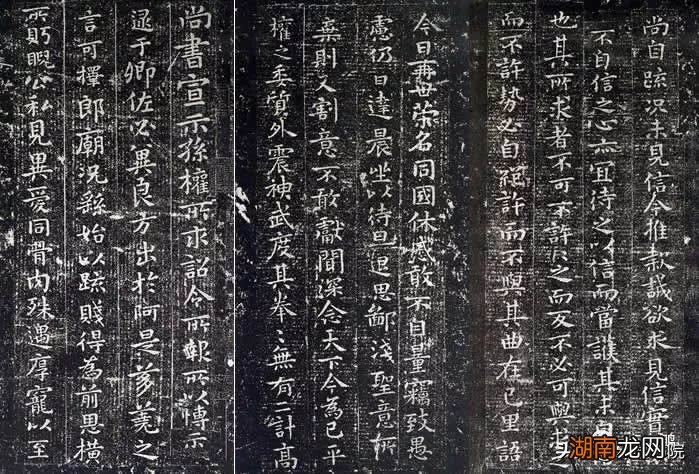 尚書宣示孫權所求詔令所報所以博示
逮于卿佐必冀良方出於阿是芻蕘之
言可擇郎廟況繇始以疏賤得為前恩橫
所盼睨公私見異愛同骨肉殊遇厚寵以至
今日再世榮名同國休慼敢不自量竊致愚
慮仍日達晨坐以待旦退思鄙淺聖意所
棄則又割意不敢獻聞深念天下今為已平
權之委質外震神武度其拳〻無有二計高
尚自疏況未見信今推款誠欲求見信實
不自信之心亦宜待之以信而當護其未自
也其所求者不可不許許之而反不必可與求之
而不許勢必自絕許而不與其曲在己里語
湖南龙网
院